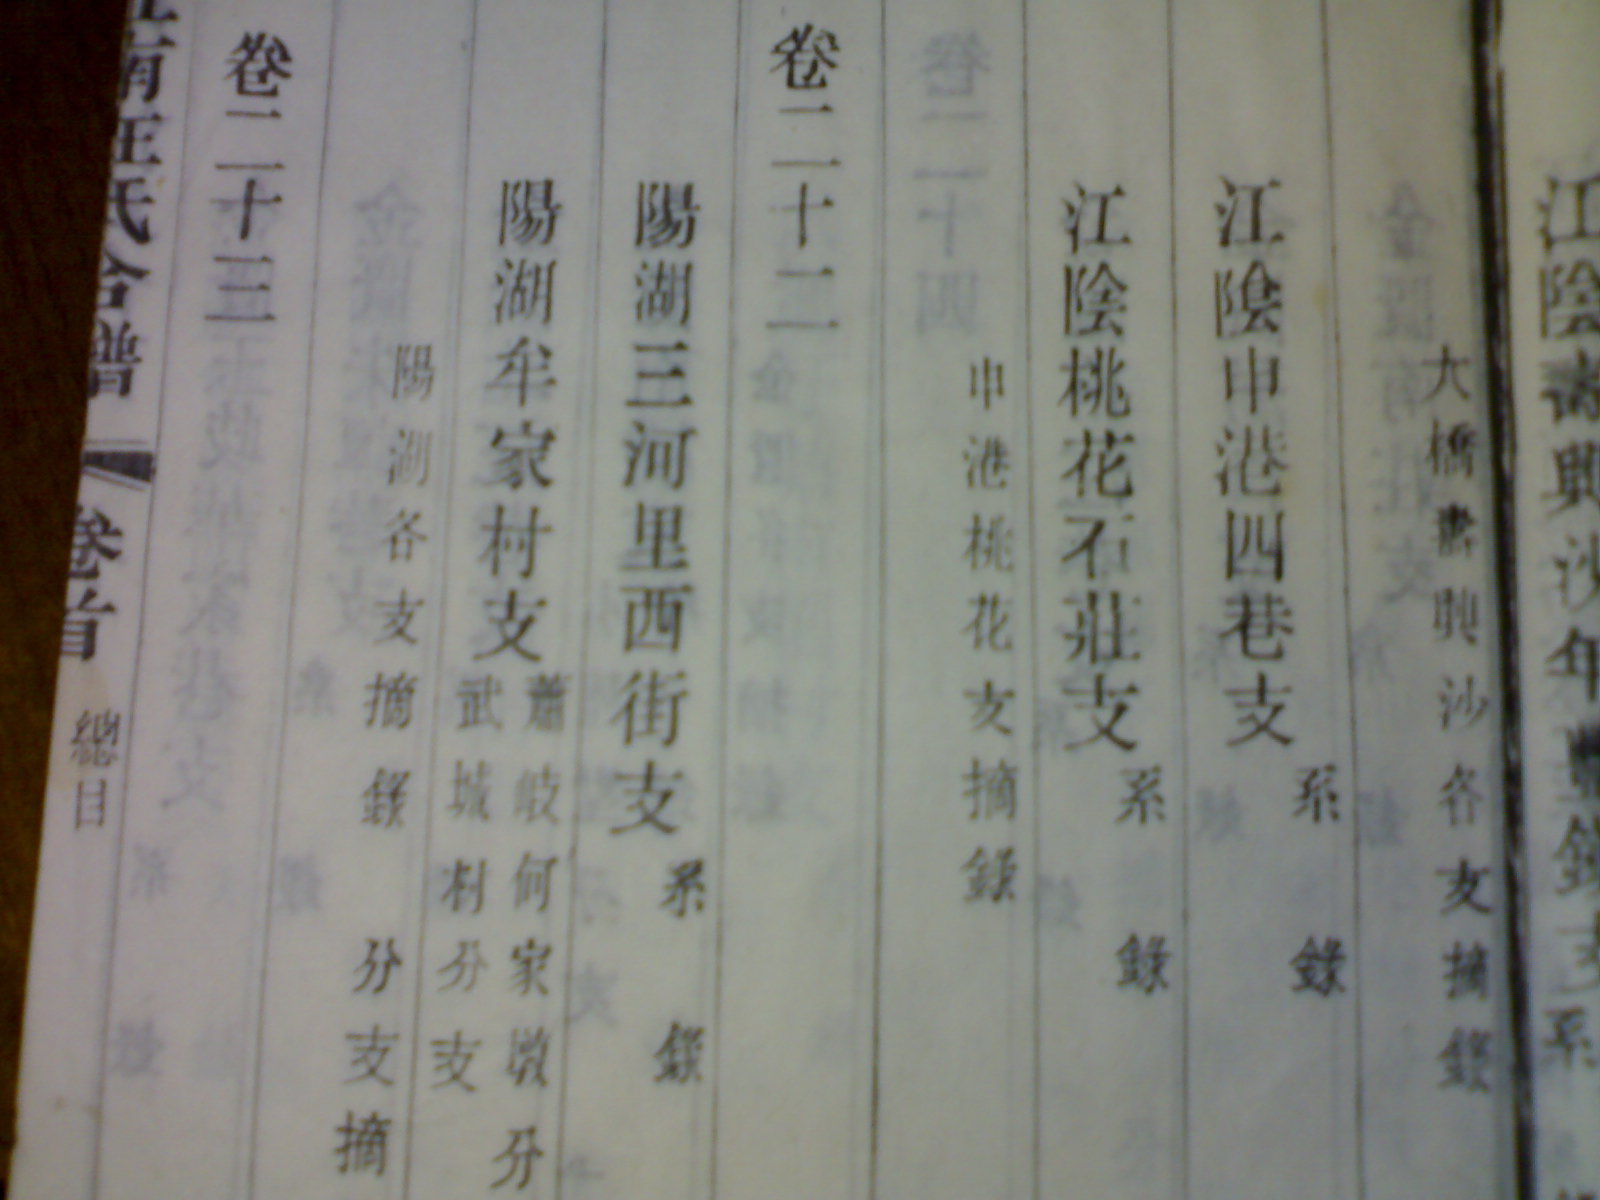 江陰壽興沙年豐鎮支 系
大橋壽興沙各支摘錄
江陰申港四巷支 系 錄
江陰桃花石莊支 系 錄
申港桃花支摘錄
卷二十二
陽湖三河里西街支 系 錄
陽湖牟家村支 蕭岐何家墩分
武城村分支
陽湖各支摘錄 分支摘
卷二十三
江南汪氏合譜 卷首 總目